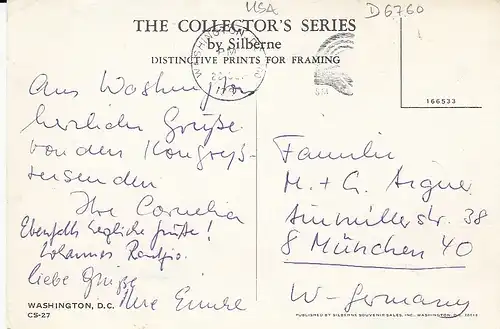 USA
D6760
THE COLLECTOR'S SERIES
by Silberne
DISTINCTIVE PRINTS FOR FRAMING
WASHINGTON
PM
166533
Aus Washington
herzliche Grüße
von den Kongreß-
reisenden
Ihre Cornelia
Ebenfalls herzliche Grüße!
Johannes
liebe Grüße
Ihre
Familie
M. + G. Aigner
Ainmillerstr. 38
8 München 40
W-Germany
WASHINGTON, D.C.
CS-27
PUBLISHED BY SILBERNE SOUVENIR SALES, INC., WASHINGTON, D.C.